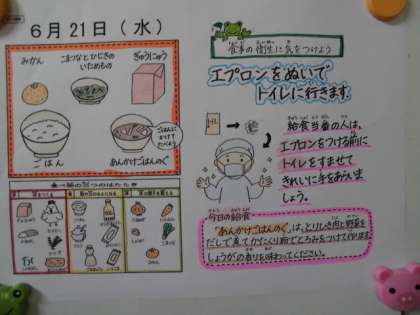 6月21日（水）
みかん
こまつなとひじきの
いためもの
ぎゅうにゅう
ごはん
あんかけごはんのぐ
ごはんに
かけて
たべよう
食べ物の3つのはたらき
食事の衛生に気をつけよう
エプロンをぬいで
トイレに行きます。
給食当番の人は、
エプロンをつける前に
トイレをすませて
きれいに手をあらいま
しょう。
今日の給食
「あんかけごはんのぐ」は、とりひき肉と野菜を
だしで煮てかたくり粉でとろみをつけて作ります。
しょうがの香りを味わってください。